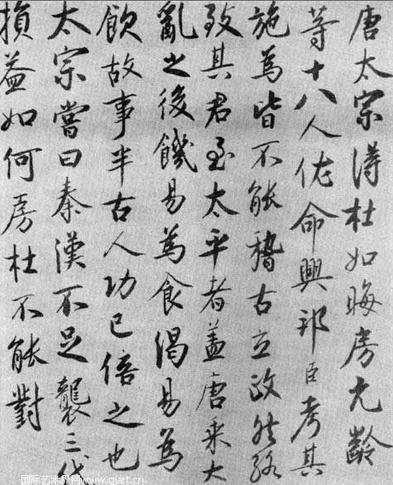 唐太宗得杜如晦房元齡
等十八人佐命興邦臣考其
施為皆不能稽古立政然終
致其君至太平者蓋唐承大
亂之後饑易為食渴易為
飲故事半古人功已倍之也
太宗嘗曰秦漢不足襲三代
損益如何房杜不能對